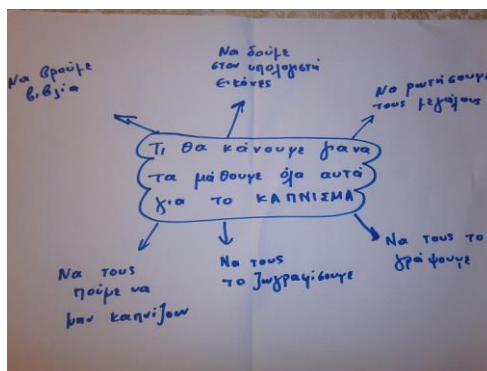 Να βρούμε
βιβλία
Να δούμε
στον υπολογιστή
εικόνες
Να ρωτήσουμε
τους μεγάλους
Τι θα κάνουμε για να
τα μάθουμε όλα αυτά
για το ΚΑΠΝΙΣΜΑ
Να τους
πούμε να
μην καπνίζουν
Να τους
το ζωγραφίσουμε
Να τους το
γράψουμε